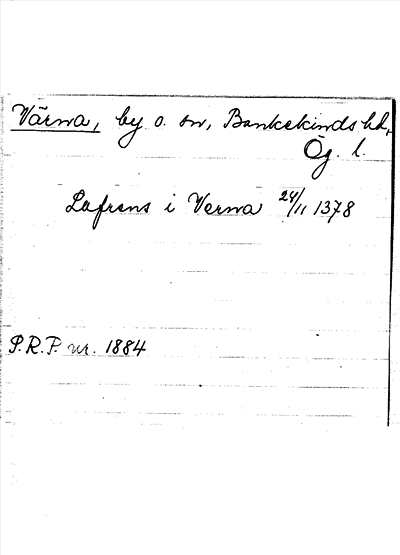 Värna, by o. sn, Bankekinds hd,
Ög. l.
Lafrens i Verna 24/11 1378
P.R.P. nr. 1884